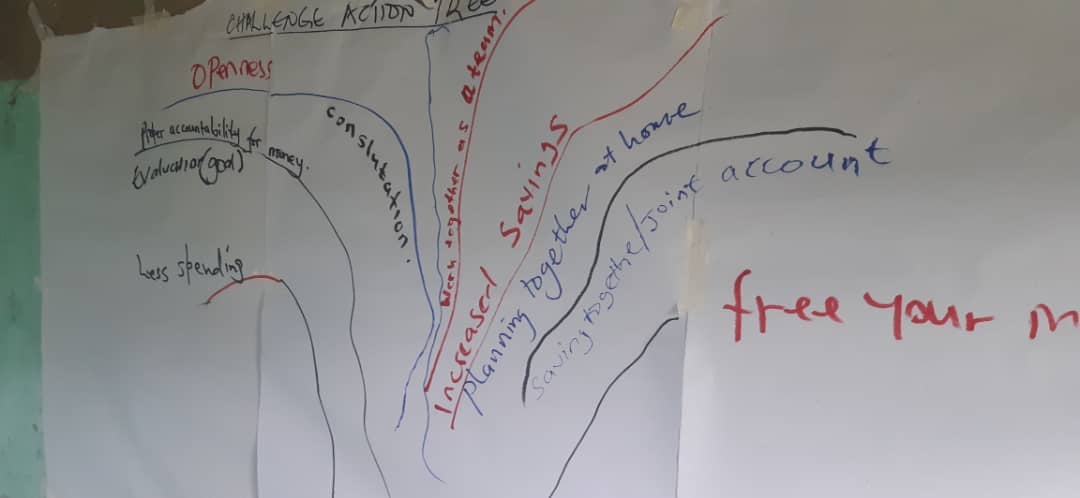 CHALLENGE ACTION TREE
OPenness
Proper accountability for money.
Evaluation (goal)
Less spending
conslutation.
Work together as a team.
Increased Savings
planning together at home
Saving togethe/Joint account
free your m